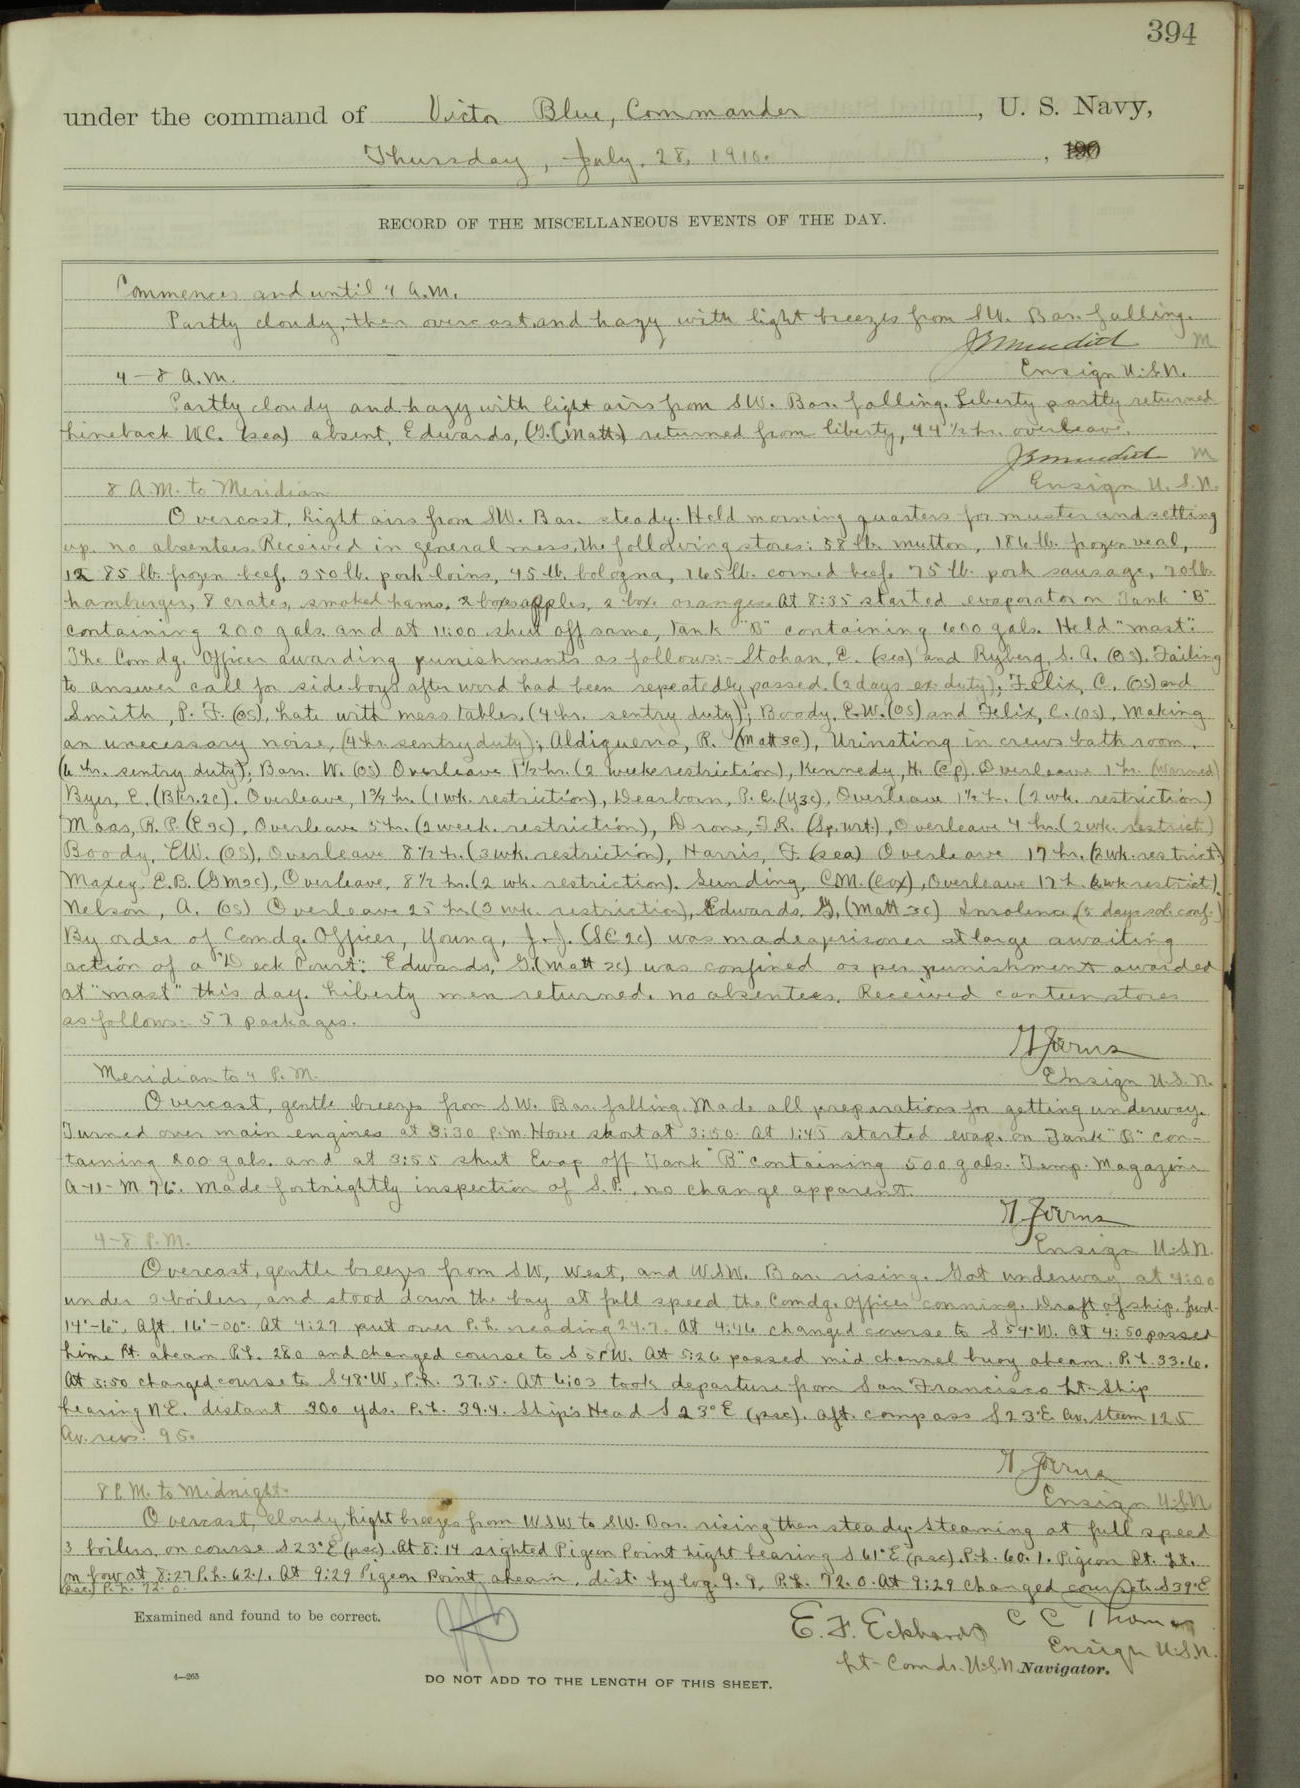 394
under the command of Victor Blue, Commander, U. S. Navy,
Thursday, July, 28, 1910. , 190
RECORD OF THE MISCELLANEOUS EVENTS OF THE DAY.
Commences and until 4 A.M.
Partly cloudy, then overcast and hazy with light breezes from SW. Bar. falling.
M
4-8 A.M.
Ensign U.S.N.
Partly cloudy and hazy with light airs from SW. Bar. falling. Liberty partly returned
Lineback W.C. (sea) absent, Edwards, G. (Matt) returned from liberty, 44 1/2 hr. overleave.
M
8 A.M. to Meridian
Ensign U.S.N.
Overcast, light airs from SW. Bar. steady. Held morning quarters for muster and setting
up. no absentees. Received in general mess, the following stores: 58 lb. mutton, 186 lb. frozen veal,
85 lb. frozen beef, 350 lb. pork loins, 45 lb. bologna, 165 lb. corned beef, 75 lb. pork sausage, 70 lb.
hamburger, 8 crates, smoked hams, 2 boxes apples, 2 box. oranges. At 8:35 started evaporator on Tank "B"
containing 200 gals. and at 11:00 shut off same, tank "B" containing 600 gals. Held "mast".
The Comdg. Officer awarding punishments as follows:- Stohan, E. (sea) and Ryberg, S. A. (OS). Failing
to answer call for sideboys after word had been repeatedly passed. (2 days ex. duty), Felix, C. (OS) and
Smith, P. F. (OS), Late with mess tables, (4 hr. sentry duty); Boody, E.W. (OS) and Felix, C. (OS), Making
an unecessary noise, (4 hr. sentry duty); Aldiguerra, R. (Matt 3c), Urinating in crews bath room.
(6 hr. sentry duty); Barr. W. (OS) Overleave 1 1/2 hr. (2 weeks restriction), Kennedy, H. (Cp). Overleave 1 hr. (warned)
Byer, E. (Bkr. 2c). Overleave, 1 3/4 hr. (1 wk. restriction), Dearborn, P. E. (Y3c), Overleave 1 1/2 hr. (2 wk. restriction)
Maas, R. P. Overleave 5 hr. (2 week. restriction), Drone, F.R. Overleave 4 hr. (2 wk. restrict.)
Boody, E.W. (OS), Overleave 8 1/2 hr. (3 wk. restriction), Harris, F. (sea) Overleave 17 hr. (2 wk. restrict.)
Maxey, E.B. (GM2c), Overleave, 8 1/2 hr. (2 wk. restriction). Gunding, C.M. (Cox), Overleave 17 h. restrict)
Nelson, A. (OS) Overleave 25 hr. (3 wk. restriction), Edwards, G. (Matt 3c) Insolence, (5 days sol. conf.)
By order of Comdg. Officer, Young, J. J. (SC2c) was made a prisoner at large awaiting
action of a "Deck Court". Edwards, G. (Matt 3c) was confined as per punishment awarded
at "mast" this day. Liberty men returned. no absentees. Received canteen stores
as follows:- 57 packages.
Meridian to 4 P.M.
Ensign U.S.N.
Overcast, gentle breezes from SW. Bar. falling. Made all preparations for getting underway.
Turned over main engines at 3:30 P.M. Hove short at 3:50. At 1:45 started evap. on Tank "B" con-
taining 200 gals. and at 3:55 shut Evap off Tank "B" containing 500 gals. Temp. Magazine
A-11-M 76°. Made fortnightly inspection of S.P., no change apparent.
4-8 P.M.
Ensign U.S.N.
Overcast, gentle breezes from SW, West, and WSW. Bar. rising. Got underway at 4:00
under 3 boilers, and stood down the bay at full speed, the Comdg. Officer conning. Draft of ship. fwd.
14'-6", Aft. 16'-00". At 4:27 put over P.L. reading 24.7. At 4:46 changed course to S 54° W. At 4:50 passed
Lime Pt. abeam P.L. 28.0 and changed course to S W. At 5:26 passed mid channel buoy abeam. P.L. 33.6.
At 5:50 changed course to S48°W, P.L. 37.5. At 6:03 took departure from San Francisco Lt. Ship
bearing N.E. distant 300 yds. P.L. 39.4. Ship's Head S 23° E (psc). aft. compass S 23° E. Av. Steam 125
Av. revs. 95.
8 P.M. to Midnight.
Ensign U.S.N.
Overcast, cloudy, light breezes from WSW to SW. Bar. rising then steady. Steaming at full speed
3 boilers, on course S 23° E (psc). At 8:14 sighted Pigeon Point Light bearing S 61° E (psc). P.L. 60.1. Pigeon Pt. Lt.
on bow at 8:27 P.L. 62.1. At 9:29 Pigeon Point abeam, dist. by log. 9.9, P.L. 72.0. At 9:29 changed course to S 39° E
(psc) P.L. 72.0.
Examined and found to be correct.
E. F. Eckhardt
C C Thomas
Ensign U.S.N.
Lt-Comdr. U.S.N. Navigator.
4—265
DO NOT ADD TO THE LENGTH OF THIS SHEET.